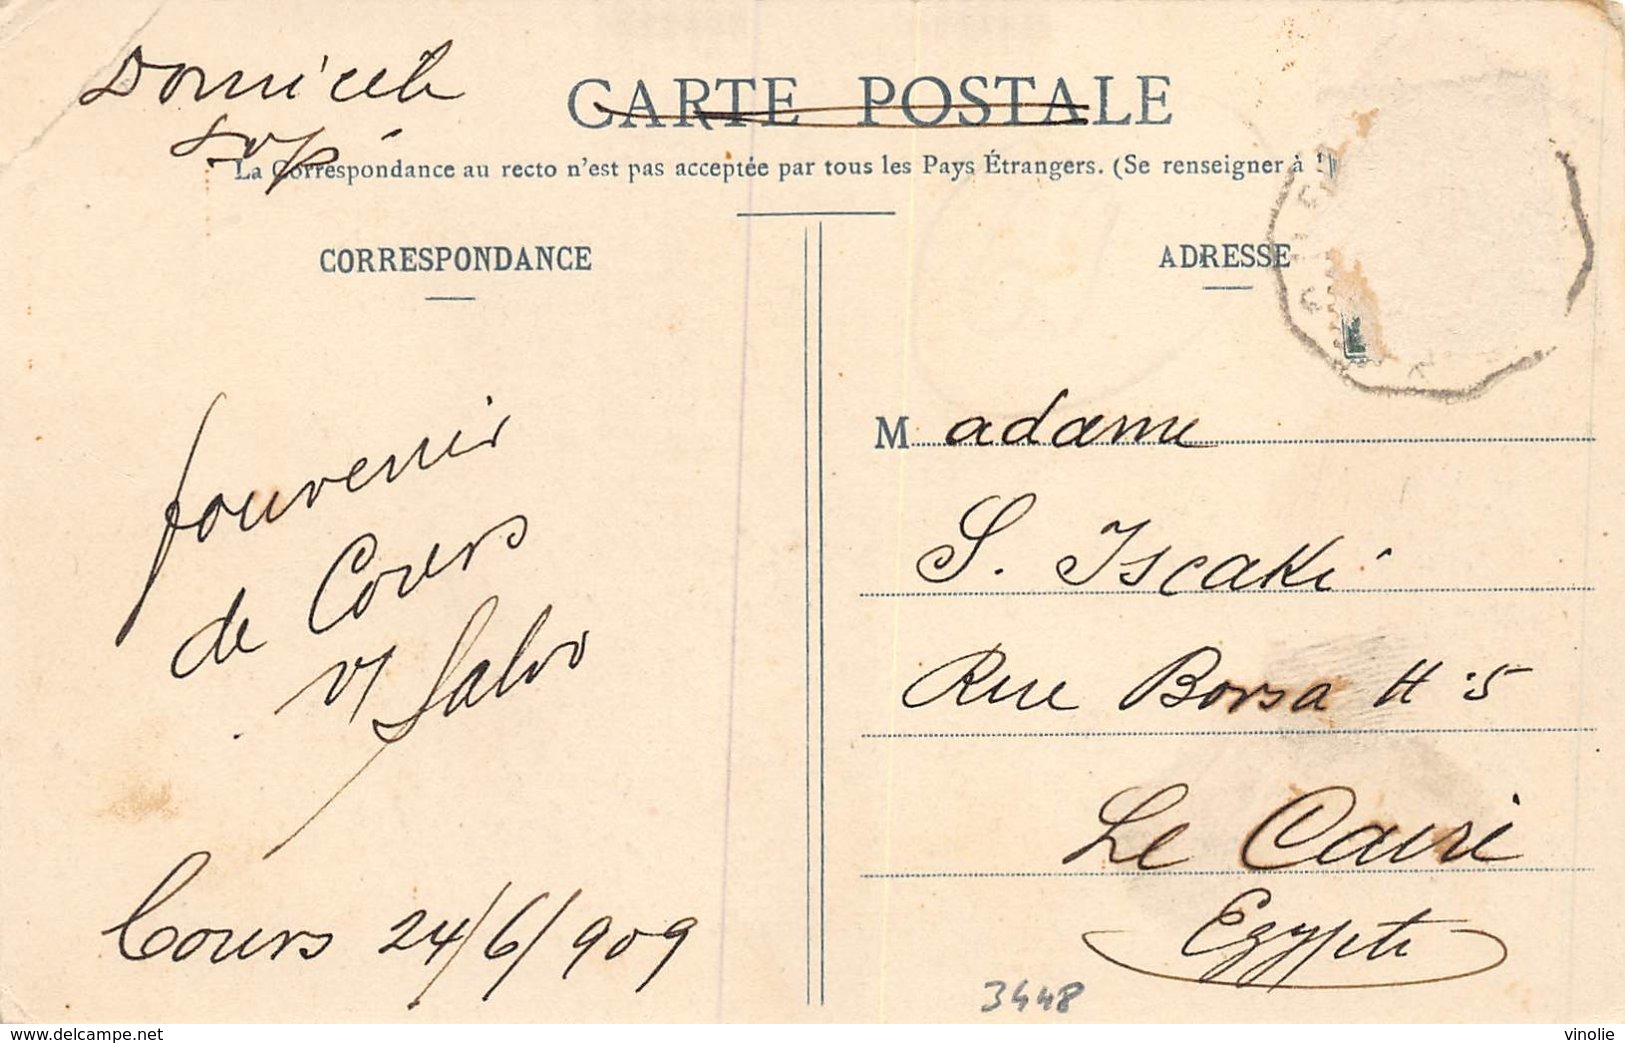 Domicile
CARTE POSTALE
La Correspondance au recto n'est pas acceptée par tous les Pays Étrangers. (Se renseigner à
CORRESPONDANCE
ADRESSE
souvenir
de Cours
Salvo
Cours 24/6/909
Madame
S. Iscaki
Rue Borsa N. 5
Le Caire
Egypte
3448
delcampe.net
vinolie